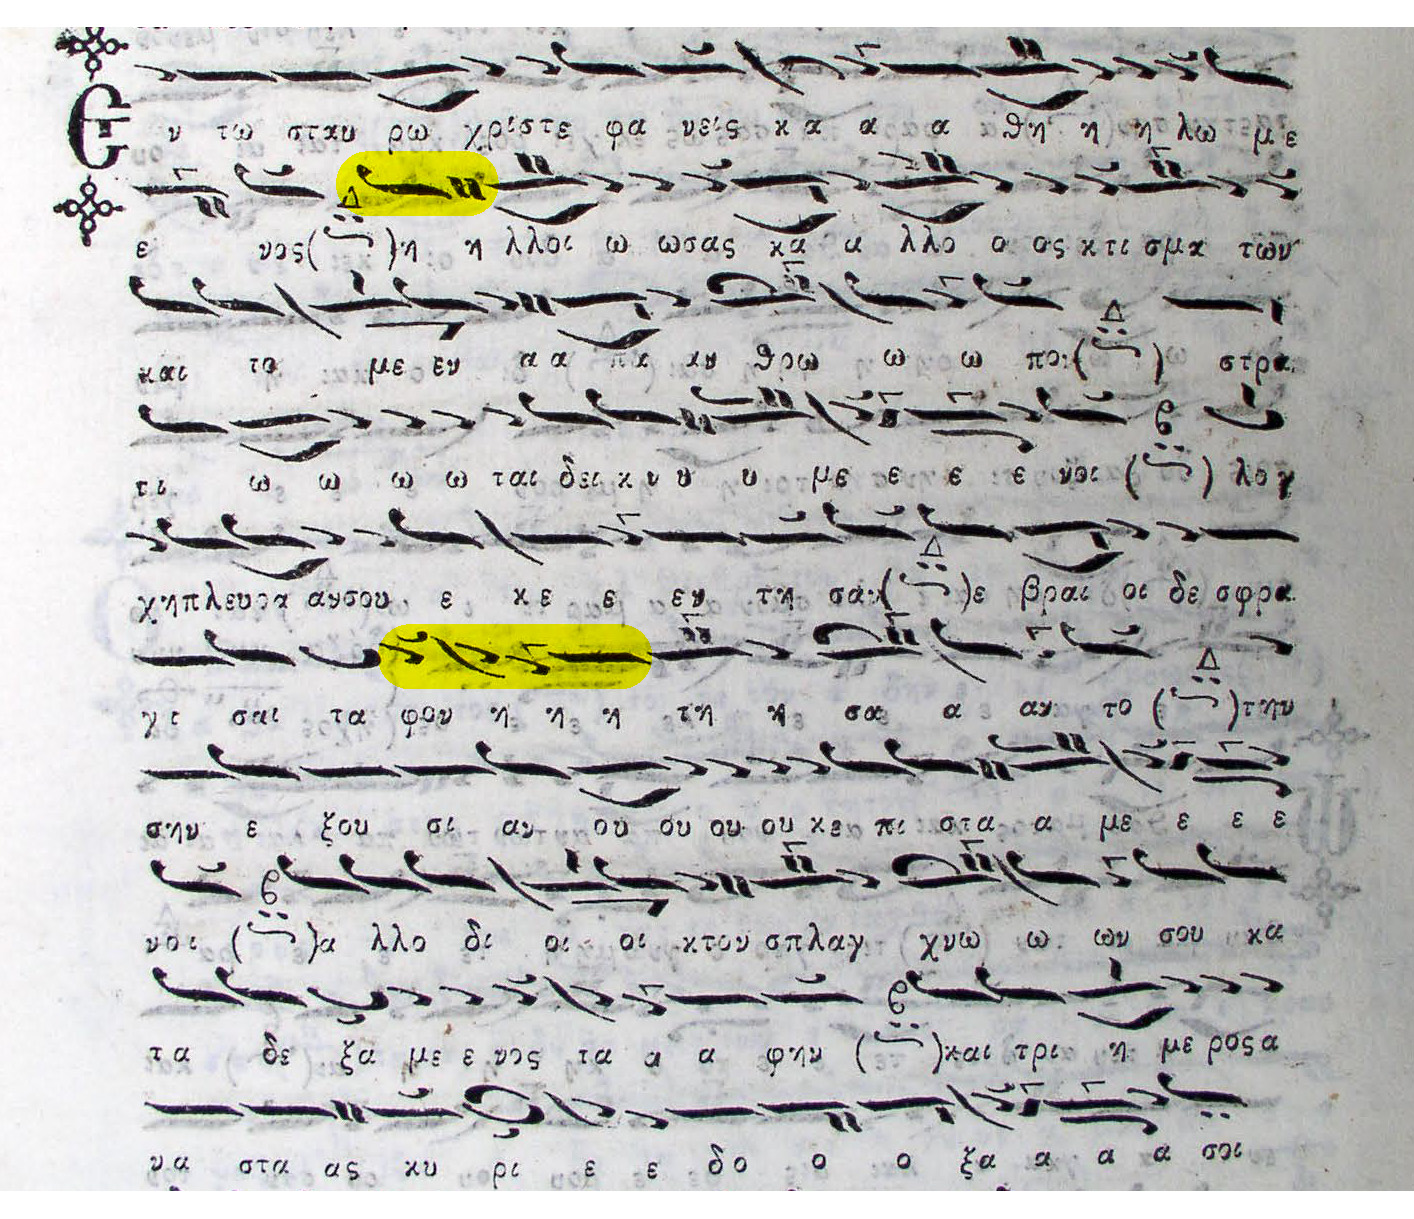 Εν τω σταυ ρω χριστε φα νεις κ α α α θη η η λω με
ε νος( Δ )η η λλοι ω ωσας κα α λλο ο ος κτι σμα των
και το με εν α α πα αν θρω ω ω ποι( Δ ) στρα
τι ω ω ω ω ται δει κ ν υ υ με ε ε ε νοι ( ) λογ
χηπλευρα ανσου ε κε ε εν τη σαν( Δ )ε βραι οι δε σφρα
γι σαι τα φον η η η τη η σα α αν το ( Δ )την
σην ε ξου σι αν ου ου ου ου κε πι στα α με ε ε ε
νοι ( )α λλο δι οι οι κτον σπλαγ χνω ω ων σου κα
τα δε ξα με ε νος τα α α φην ( )και τρι η με ρος α
να στα ας κυ ρι ε ε δο ο ο ξα α α α σοι